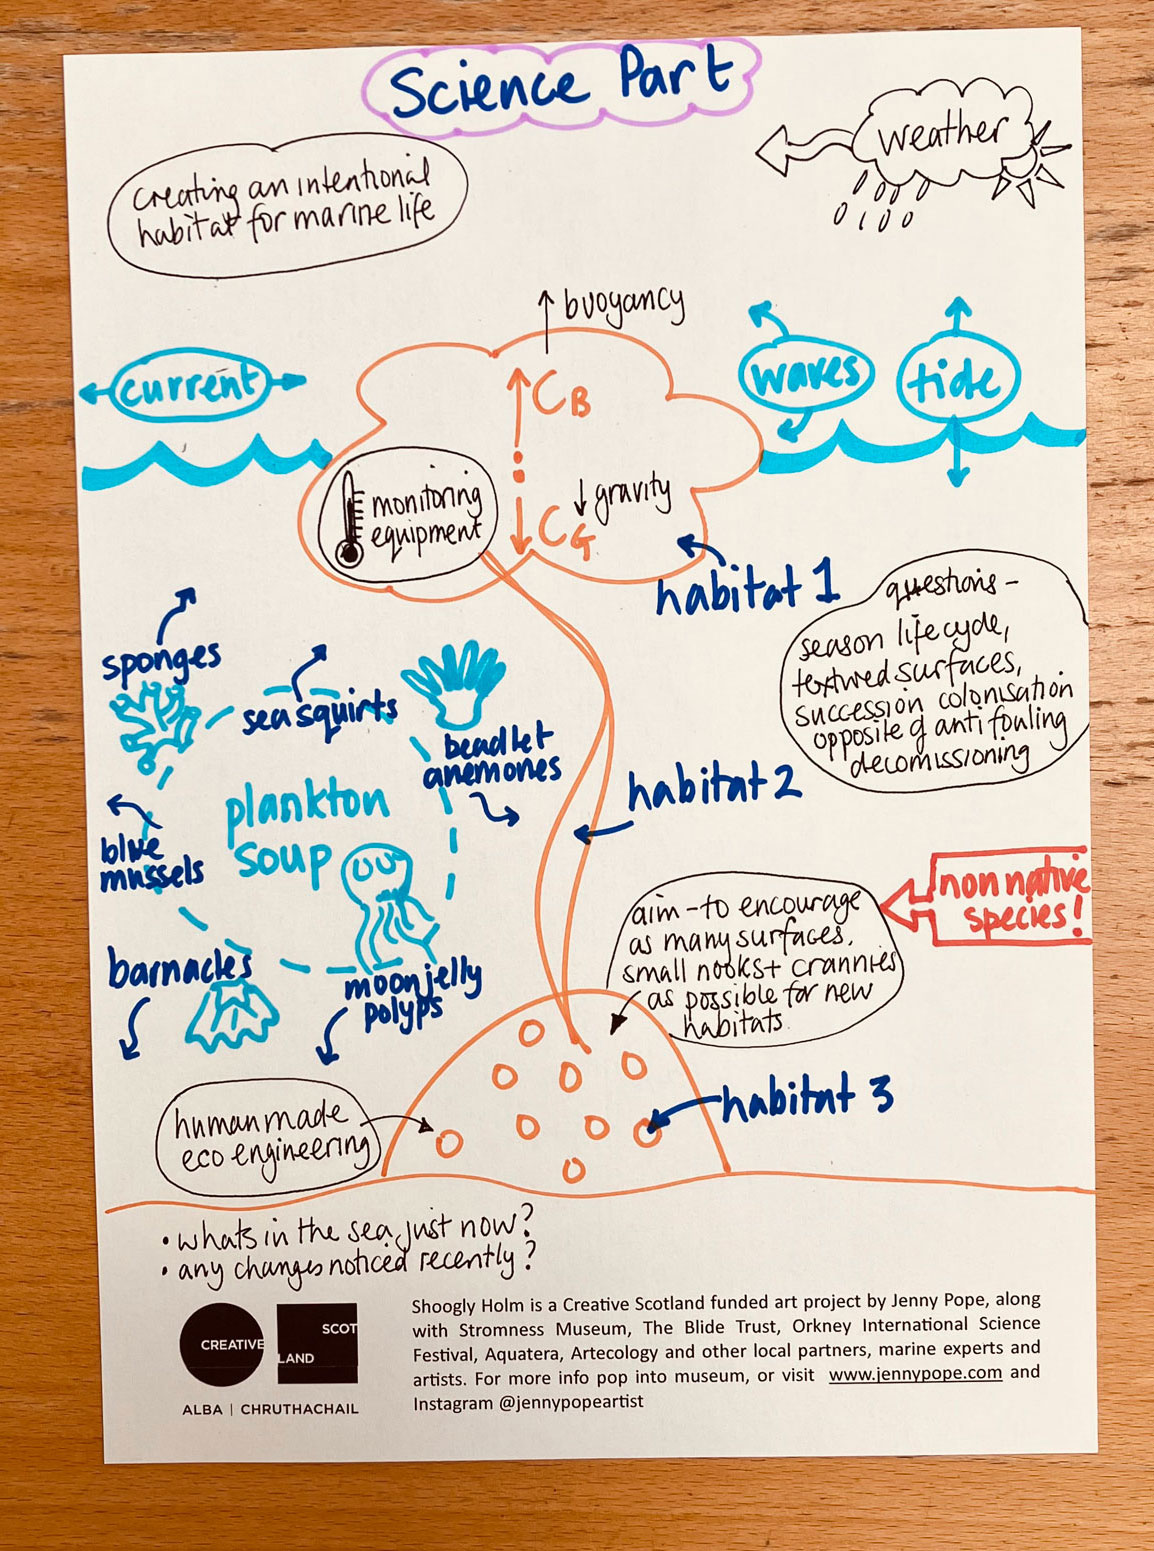 Science Part
creating an intentional
habitat for marine life
weather
buoyancy
current
waves
tide
CB
monitoring
equipment
gravity
CG
habitat 1
questions -
season lifecycle,
textured surfaces,
succession colonisation
opposite of anti fouling
decomissioning
sponges
sea squirts
beadlet
anemones
plankton
soup
habitat 2
blue
mussels
non native
species!
aim - to encourage
as many surfaces,
small nooks + crannies
as possible for new
habitats.
barnacles
moon jelly
polyps
habitat 3
human made
eco engineering
• whats in the sea just now?
• any changes noticed recently?
CREATIVE
SCOT
LAND
ALBA | CHRUTHACHAIL
Shoogly Holm is a Creative Scotland funded art project by Jenny Pope, along
with Stromness Museum, The Blide Trust, Orkney International Science
Festival, Aquatera, Artecology and other local partners, marine experts and
artists. For more info pop into museum, or visit www.jennypope.com and
Instagram @jennypopeartist